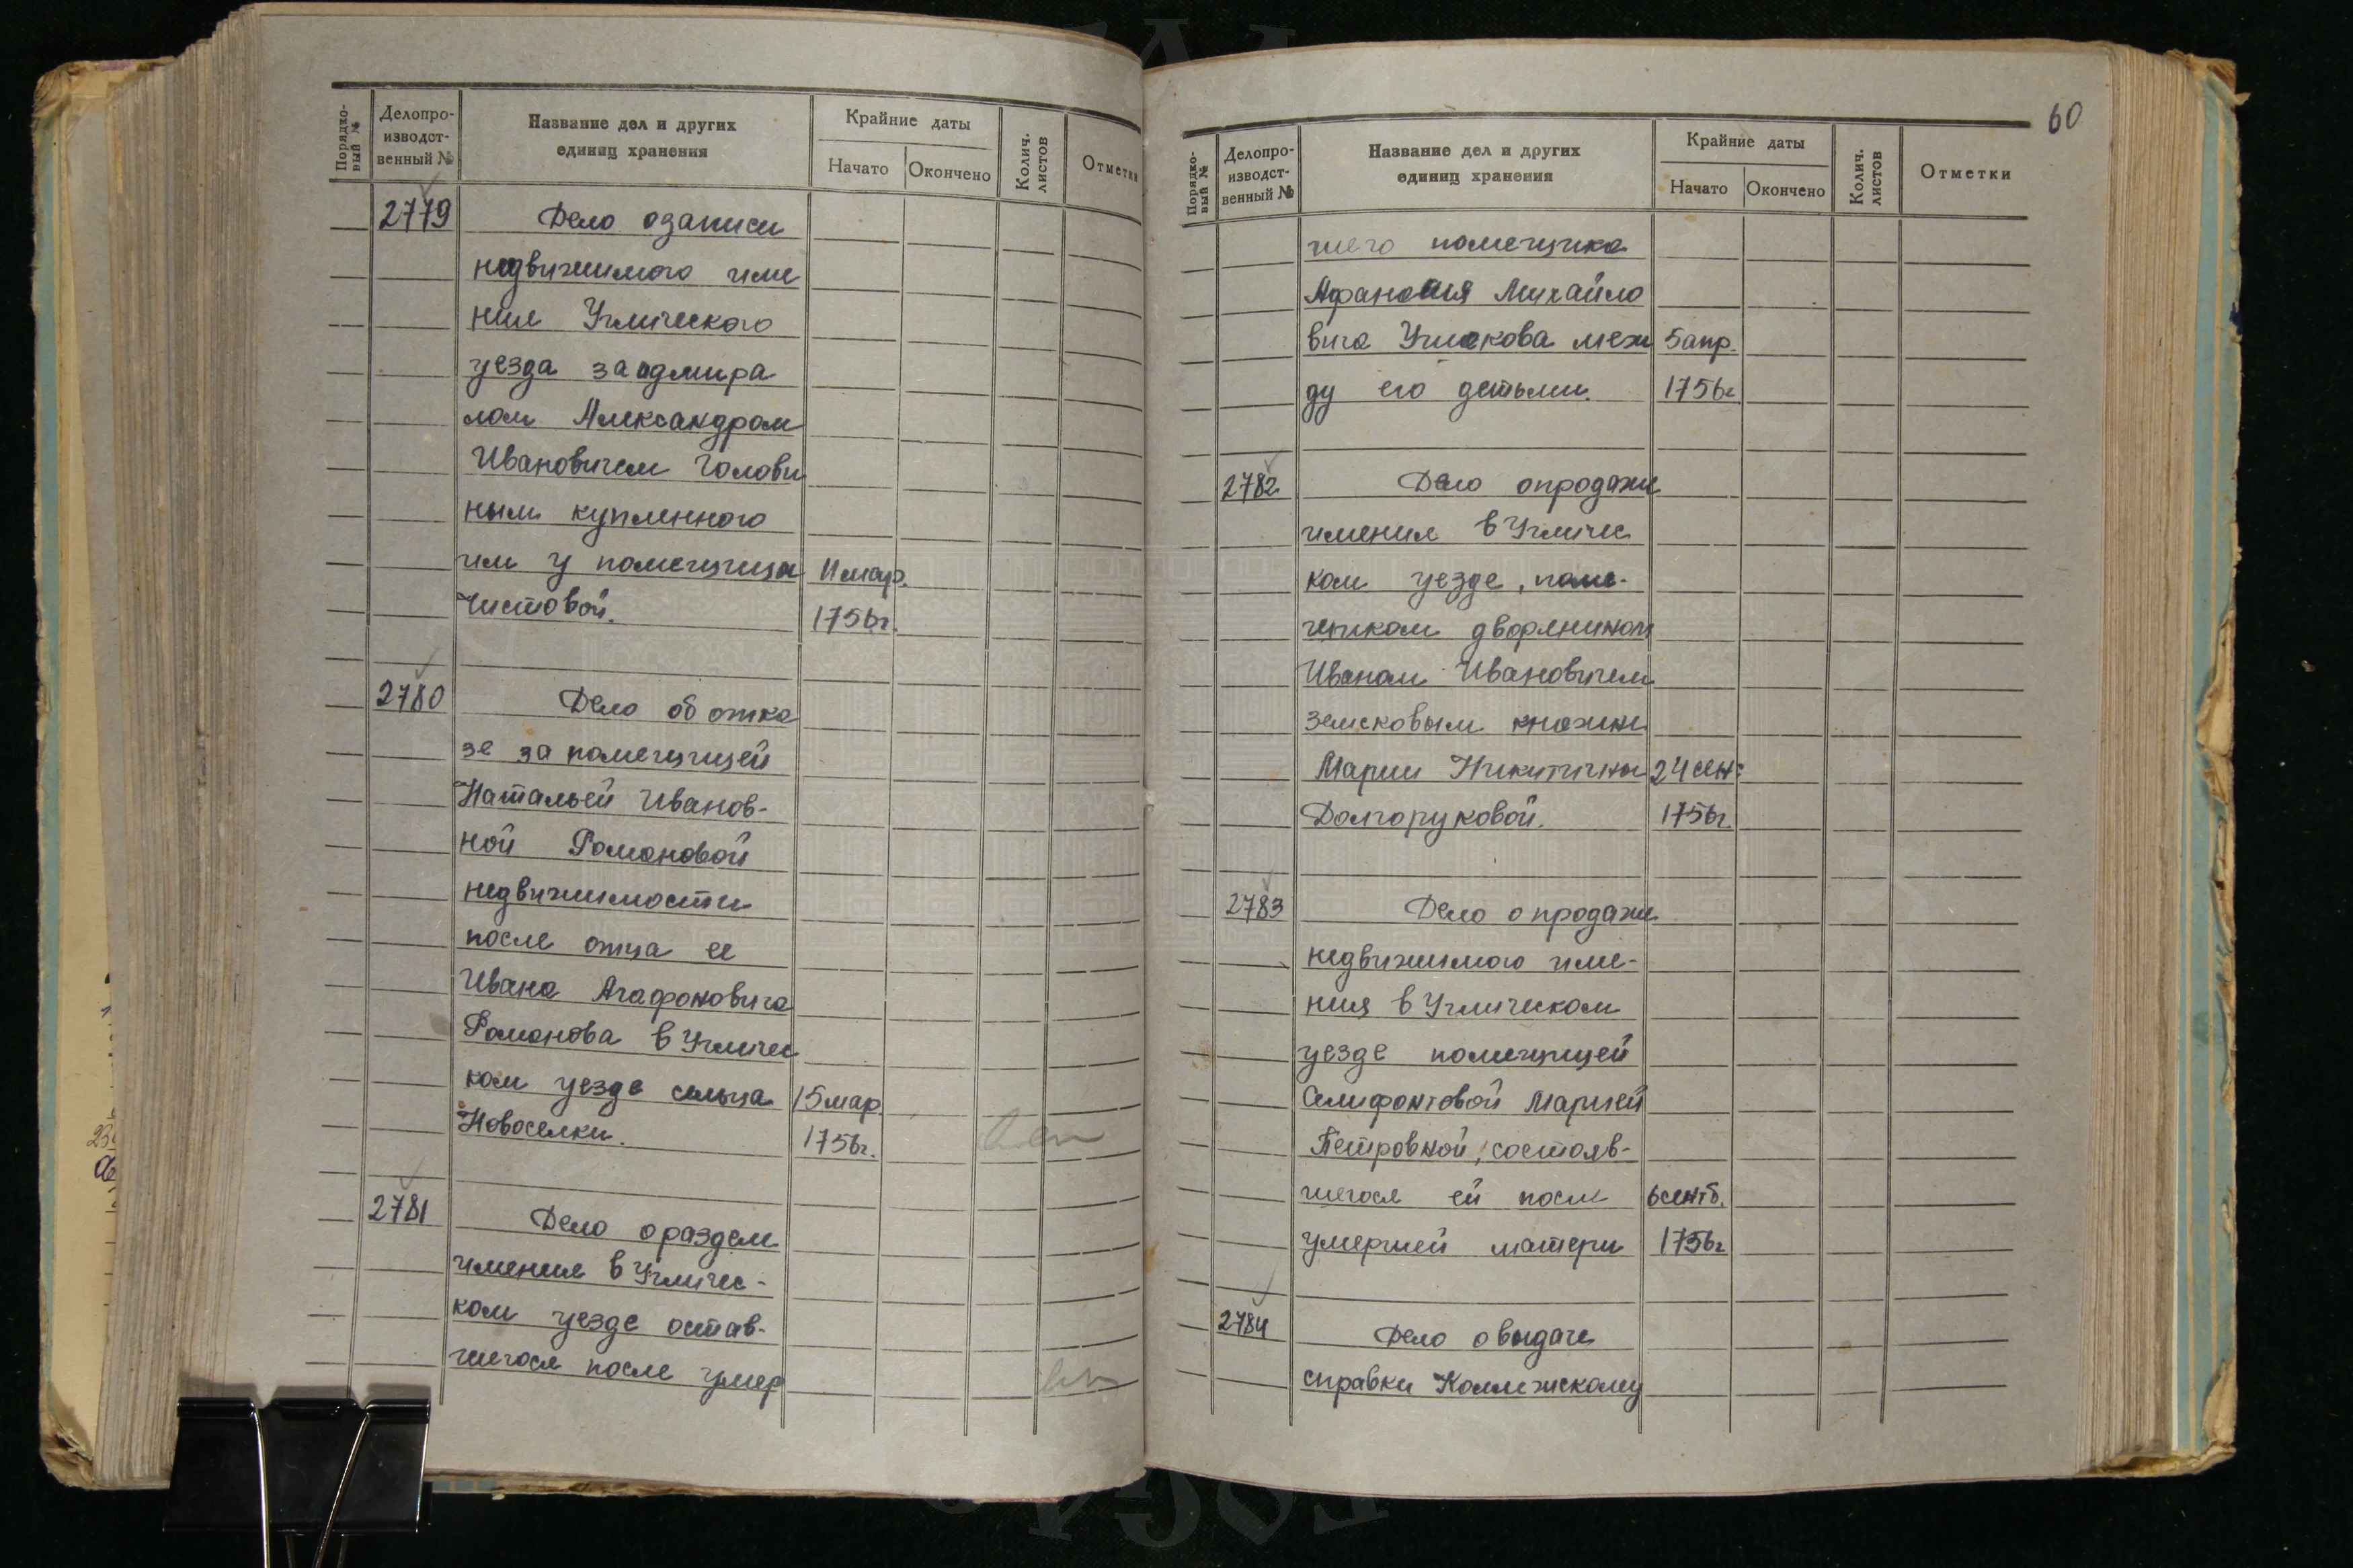 Порядко-
вый №
Делопро-
изводст-
венный №
Название дел и других
единиц хранения
Крайние даты
Начато
Окончено
Колич.
листов
Отметки
2779
Дело о записи
недвижимого име
ния Угличского
уезда за адмира
лом Александром
Ивановичем Голови
ным купленного
им у помещицы 11 мар.
Чистовой. 1756г.
2780
Дело об отка
зе за помещицей
Натальей Иванов-
ной Романовой
недвижимости
после отца ее
Ивана Агафоновича
Романова в Угличес
ком уезде сельца 15 мар.
Новоселки. 1756г.
2781
Дело о разделе
имения в Угличес-
ком уезде остав-
шегося после умер
60
Порядко-
вый №
Делопро-
изводст-
венный №
Название дел и других
единиц хранения
Крайние даты
Начато
Окончено
Колич.
листов
Отметки
шего помещика
Афанасия Михайло
вича Ушакова меж 5 апр.
ду его детьми. 1756г
2782
Дело о продаже
имения в Угличес
ком уезде, поме-
щиком дворянином
Иваном Ивановичем
Земсковым княжне
Марии Никитичны 24 сен.
Долгоруковой. 1756г.
2783
Дело о продаже
недвижимого име-
ния в Угличском
уезде помещицей
Селифонтовой Марией
Петровной, состояв-
шегося ей после 6 сентб.
умершей матери 1756г
2784
Дело о выдаче
справки Коллежскому